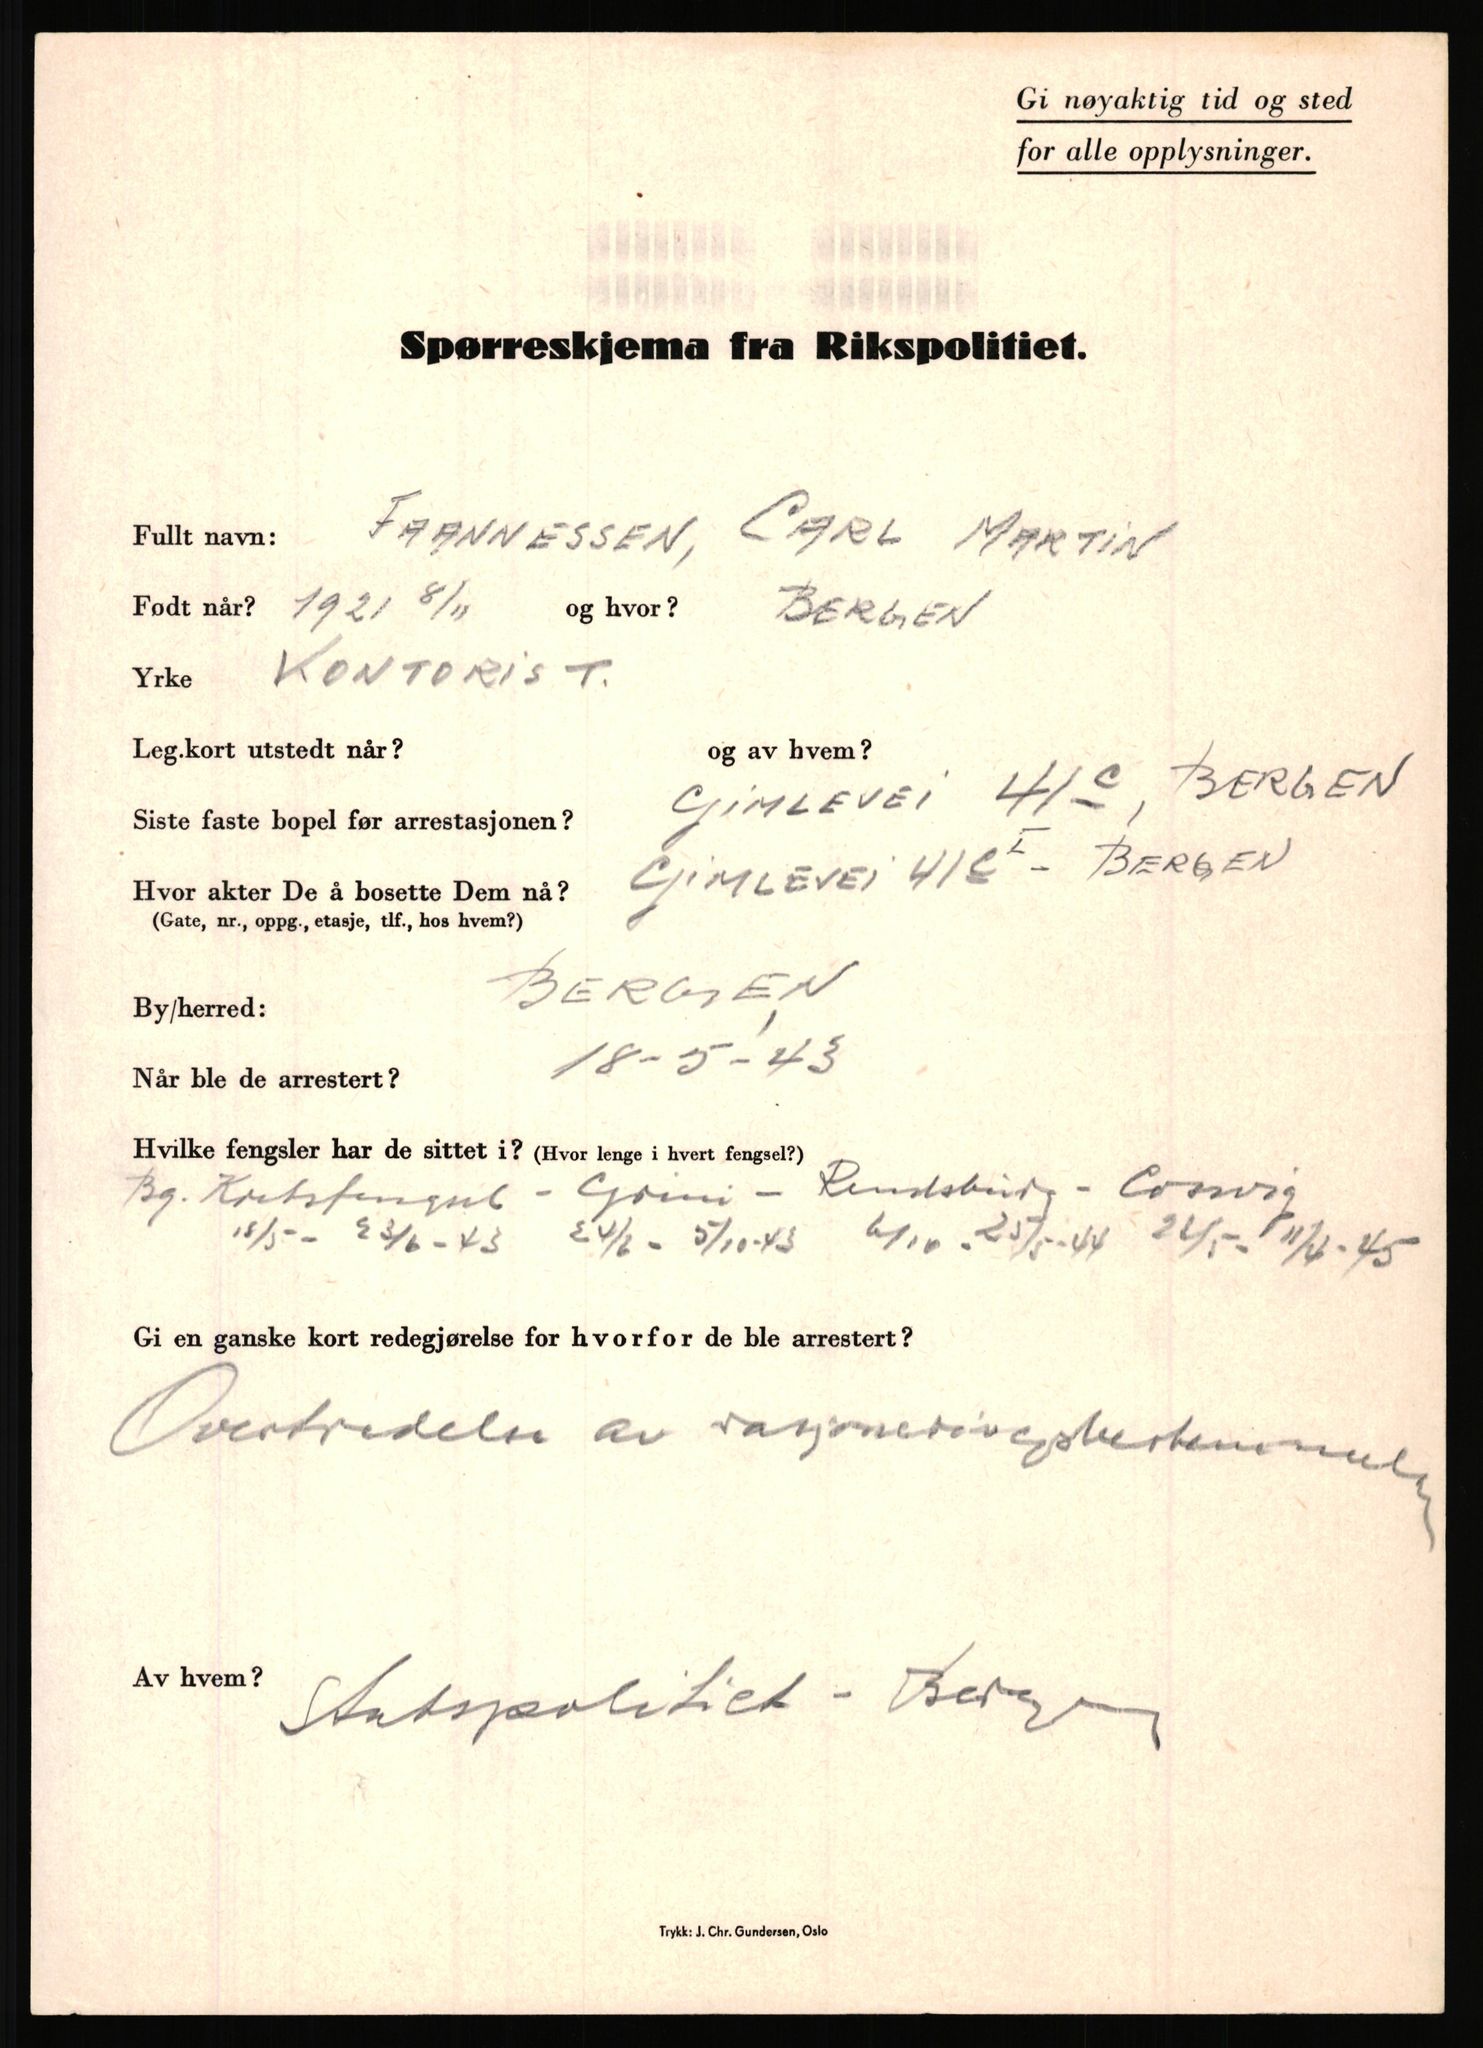 Gi nøyaktig tid og sted
for alle opplysninger.
Spørreskjema fra Rikspolitiet.
Fullt navn: FAANNESSEN, CARL MARTIN
Født når? 1921 8/11 og hvor? BERGEN
Yrke KONTORIST.
Leg.kort utstedt når? og av hvem?
Siste faste bopel før arrestasjonen? GIMLEVEI 41c, BERGEN
Hvor akter De å bosette Dem nå? GIMLEVEI 41c I - BERGEN
(Gate, nr., oppg., etasje, tlf., hos hvem?)
By/herred: BERGEN
Når ble de arrestert? 18-5-43
Hvilke fengsler har de sittet i? (Hvor lenge i hvert fengsel?)
Bg. Kretsfengsel - Grini - Rendsburg - Coswig
18/5 - 23/6-43 24/6 - 5/10-43 6/10 - 25/5-44 26/5 - 11/4-45
Gi en ganske kort redegjørelse for hvorfor de ble arrestert?
Overtredelse av rasjoneringsbestemmelser
Av hvem? Statspolitiet - Bergen
Trykk: J. Chr. Gundersen, Oslo